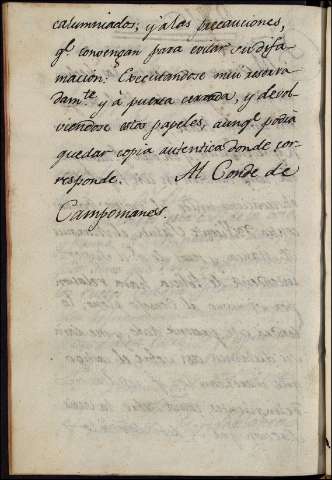 calumniados; y á las precauciones,
q.e convengan para evitar su difa-
macion. Executandose mui reserva
dam.te y á puerta cerrada, y devol
viendose estos papeles, aunq.e podrá
quedar copia autentica donde cor-
responde. Al Conde de
Campomanes.